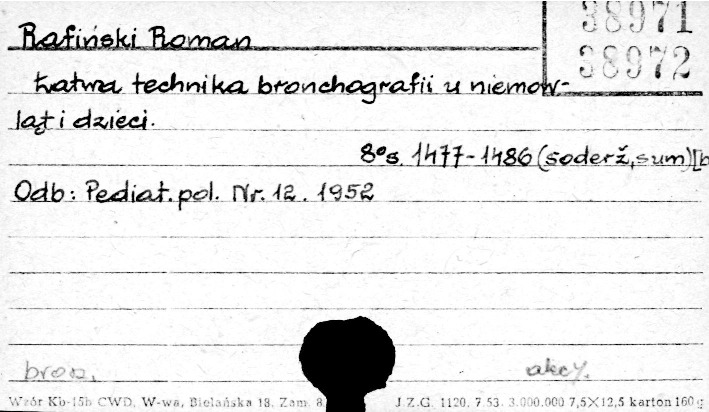 38971
38972
Rafiński Roman
Łatwa technika bronchografii u niemow-
ląt i dzieci.
8° s. 1477-1486 (soderž, sum) [b
Odb: Pediat. pol. Nr. 12. 1952
brosz. akc.
Wzór Kb-15b CWD, W-wa, Bielańska 18, Zam. 8 J.Z.G. 1120. 7.53. 3.000.000 7,5×12,5 karton 160 g